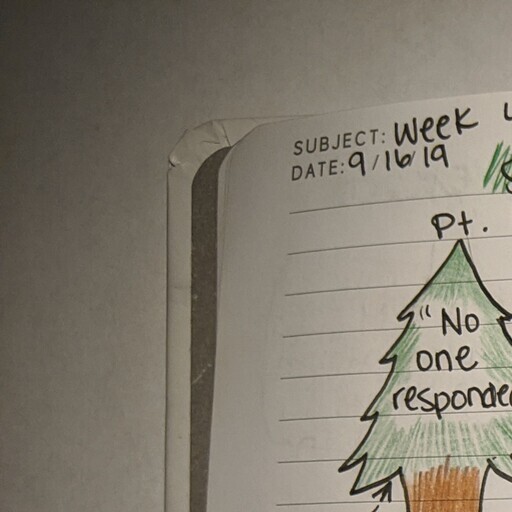 SUBJECT: Week
DATE: 9/16/19
Pt.
"No
one
responde